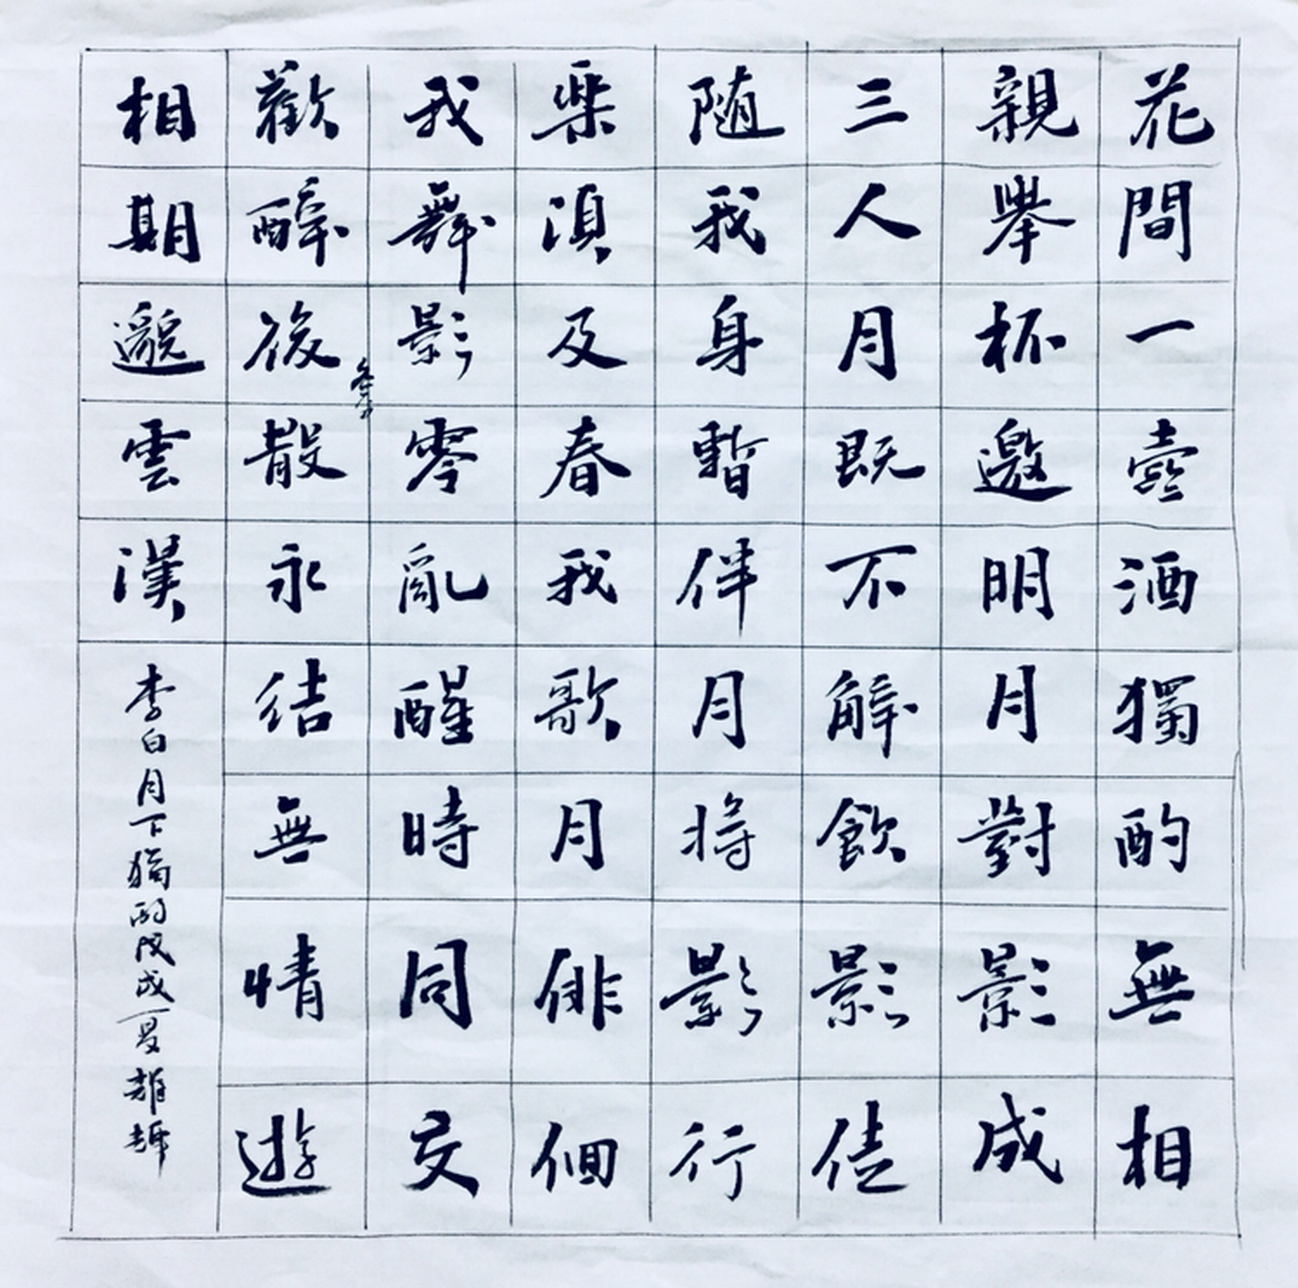 花間一壺酒獨酌無相
親舉杯邀明月對影成
三人月既不解飲影徒
随我身暫伴月将影行
樂須及春我歌月徘徊
我舞影零亂醒時同交
歡醉後各分散永結無情遊
相期邈雲漢
李白月下獨酌戊戌夏